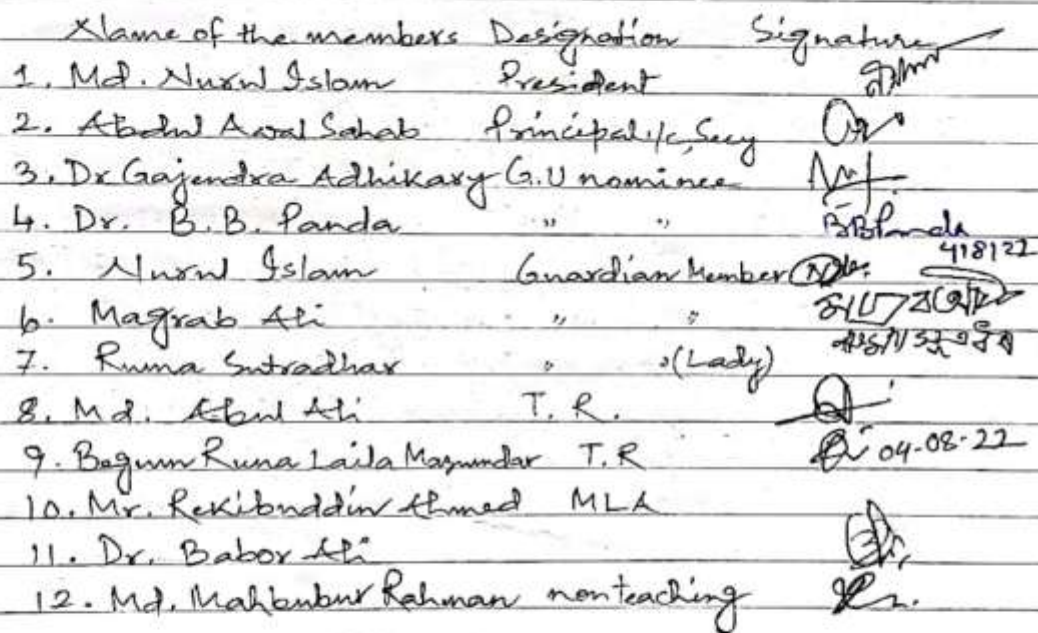 Name of the members Designation Signature
1. Md. Nurul Islam President
2. Abdul Awal Sahab Principal i/c, Secy
3. Dr Gajendra Adhikary G.U nominee
4. Dr. B. B. Panda " " BBPanda
4/8/22
5. Nurul Islam Guardian Member
6. Magrab Ali " "
7. Ruma Sutradhar " "(Lady)
8. Md. Abul Ali T. R.
9. Begum Runa Laila Mazumdar T. R 04-08-22
10. Mr. Rekibuddin Ahmed MLA
11. Dr. Babor Ali
12. Md. Mahbubur Rahman non teaching